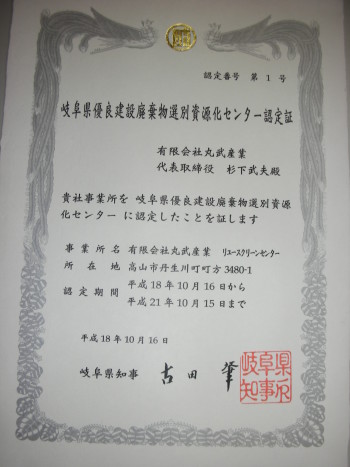 認定番号 第 1 号
岐阜県優良建設廃棄物選別資源化センター認定証
有限会社丸武産業
代表取締役 杉下武夫殿
貴社事業所を 岐阜県優良建設廃棄物選別資源
化センター に認定したことを証します
事業所名 有限会社丸武産業 リユースクリーンセンター
所在地 高山市丹生川町町方3480-1
認定期間 平成18年10月16日から
平成21年10月15日まで
平成18年10月16日
岐阜県知事 古田 肇
岐阜県知事